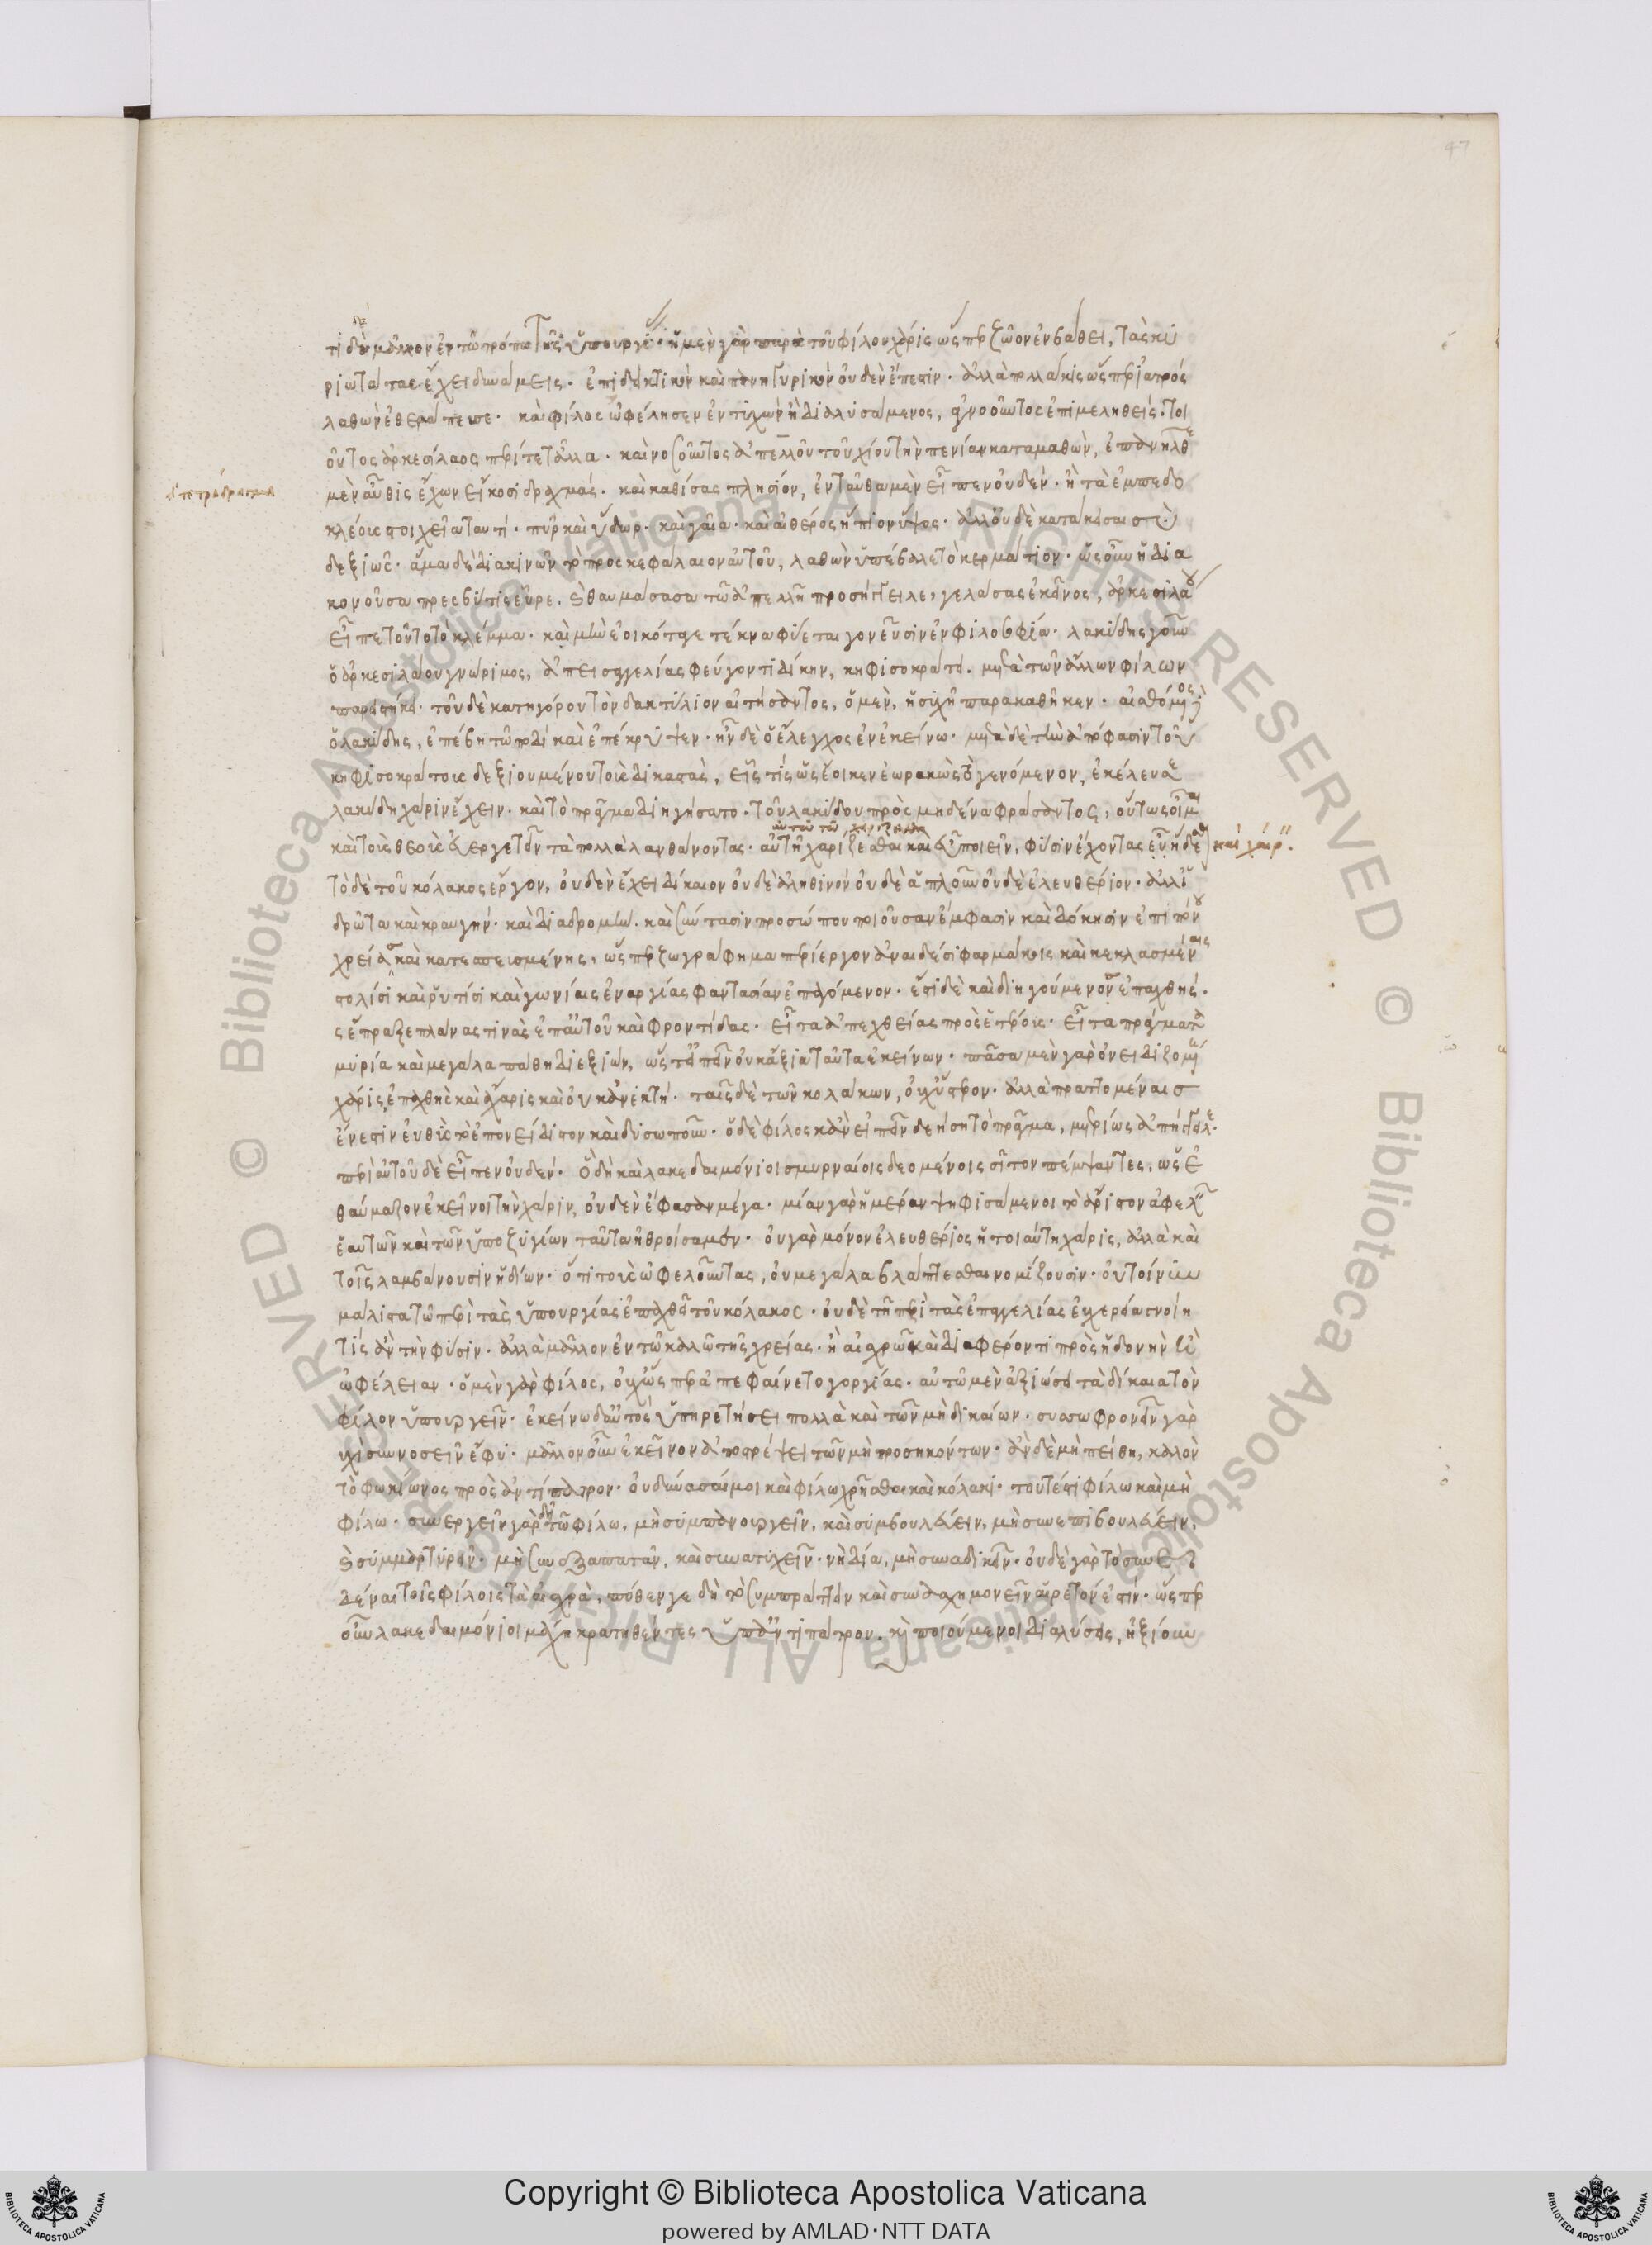 47
τί δὴ μᾶλλον ἐν τῶ τρόπω τῆς ὑπουργί· ἡ μὲν γὰρ παρὰ τοῦ φίλου χάρις ὥσπερ ζῶον ἐν βάθει, τὰς κυ
ριωτάτας ἔχει δυνάμεις. ἐπιδεικτικὸν καὶ πανηγυρικὸν οὐδὲν ἔπεστιν. ἀλλὰ πολλάκις ὥσπερ ἰατρὸς
λαθὼν ἐθεράπευσε. καὶ φίλος ὠφέλησεν ἐντυχὼν ἢ διαλυσάμενος, ἀγνοοῦντος ἐπιμεληθείς. τοι
οῦτος ἀρκεσίλαος περί τε τἄλλα. καὶ νοσοῦντος ἀπελλοῦ τοῦ χίου τὴν πενίαν καταμαθὼν, ἐπανῆλθε
μὲν αὖθις ἔχων εἴκοσι δραχμάς. καὶ καθίσας πλησίον, ἐνταῦθα μὲν εἶπεν οὐδέν. ἢ τὰ ἐμπεδο
δ τετράδραχμα
κλέους στοιχεῖα ταυτί. πῦρ καὶ ὕδωρ. καὶ γαῖα. καὶ αἰθέρος ἤπιον ὕψος. ἀλλ' οὐδὲ κατάκεισαι σὺ
δεξιῶς. ἅμα δὲ διακινῶν τὸ προσκεφάλαιον αὐτοῦ, λαθὼν ὑπέβαλε τὸ κερμάτιον. ὡς οὖν ἡ δια
κονοῦσα πρεσβύτις εὗρε. καὶ θαυμάσασα τῶ ἀπελλῆ προσήγγειλε, γελάσας ἐκεῖνος, ἀρκεσιλάου
εἶπε τοῦτο τὸ κλέμμα. καὶ μὴν ἐοικότας τέκνα φύεται γονεῦσιν ἐν φιλοσοφία. λακύδης γοῦν
ὁ ἀρκεσιλάου γνώριμος, ἀπ' εισαγγελίας φεύγοντι δίκην, κηφισοκράτει. μετὰ τῶν ἄλλων φίλων
παρειστήκει. τοῦ δὲ κατηγόρου τὸν δακτύλιον αἰτήσαντος, ὁ μὲν, ἡσυχῆ παρακαθῆκεν. αἰσθόμενος δὲ
ὁ λακύδης, ἐπέβη τῶ ποδὶ καὶ ἐπέκρυψεν. ἦν δὲ ὁ ἔλεγχος ἐν ἐκείνω. μετὰ δὲ τὴν ἀπόφασιν τοῦ
κηφισοκράτους δεξιουμένου τοὺς δικαστὰς, εἷς τίς ὡς ἔοικεν ἑωρακὼς τὸ γενόμενον, ἐκέλευσε
λακύδη χάριν ἔχειν. καὶ τὸ πρᾶγμα διηγήσατο. τοῦ λακύδου πρὸς μηδένα φράσαντος, οὕτως οἶμαι
καὶ τοὺς θεοὺς εὐεργετεῖν τὰ πολλὰ λανθάνοντας. αὐτῆ χαρίζεσθαι καὶ εὖ ποιεῖν, φύσιν ἔχοντας εὖ ἥδεσθ
αὐτῶ τῶ χαρίζεσθαι
καὶ χαίρ
τὸ δὲ τοῦ κόλακος ἔργον, οὐδὲν ἔχει δίκαιον οὐδὲ ἀληθινὸν οὐδὲ ἁπλοῦν οὐδὲ ἐλευθέριον. ἀλλ' ἱ
δρῶτα καὶ κραυγήν. καὶ διαδρομὴν. καὶ σύντασιν προσώπου ποιοῦσαν ἔμφασιν καὶ δόκησιν ἐπιπόνου
χρείας καὶ κατεσπευσμένης, ὥσπερ ζωγράφημα περίεργον ἀναιδέσι φαρμάκοις καὶ κεκλασμέναις
στολίσι καὶ ῥυτίσι καὶ γωνίαις ἐναργείας φαντασίαν ἐπαγόμενον. ἔστι δὲ καὶ διηγούμενον ἐπαχθής.
ὡς ἔπραξε πλάνας τινὰς ἐπ' αὐτοῦ καὶ φροντίδας. εἶτα ἀπεχθείας πρὸς ἑτέρους. εἶτα πράγματα
μυρία καὶ μεγάλα πάθη διεξιὼν, ὥστε εἰπεῖν οὐκ ἄξια ταῦτα ἐκείνων. πᾶσα μὲν γὰρ ὀνειδιζομένη
χάρις, ἐπαχθὴς καὶ ἄχαρις καὶ οὐκ ἀνεκτή. ταῖς δὲ τῶν κολάκων, οὐχ ὕστερον. ἀλλὰ πραττομέναις
ἔνεστιν εὐθὺς τὸ ἐπονείδιστον καὶ δυσωποῦν. ὁ δὲ φίλος κἂν εἰπεῖν δεήση τὸ πρᾶγμα, μετρίως ἀπήγγειλε.
περὶ αὐτοῦ δὲ εἶπεν οὐδέν. ὃ δὴ καὶ λακεδαιμόνιοι σμυρναίοις δεομένοις σῖτον πέμψαντες, ὡς ἐ
θαύμαζον ἐκεῖνοι τὴν χάριν, οὐδὲν ἔφασαν μέγα. μίαν γὰρ ἡμέραν ψηφισάμενοι τὸ ἄριστον ἀφελεῖν
ἑαυτῶν καὶ τῶν ὑποζυγίων ταῦτα ἠθροίσαμεν. οὐ γὰρ μόνον ἐλευθέριος ἡ τοιαύτη χάρις, ἀλλὰ καὶ
τοῖς λαμβάνουσιν ἡδίων. ὅτι τοὺς ὠφελοῦντας, οὐ μεγάλα βλάπτεσθαι νομίζουσιν. οὐ τοίνυν
μάλιστα τῶ περὶ τὰς ὑπουργίας ἐπαχθεῖ τοῦ κόλακος. οὐδὲ τῆ περὶ τὰς ἐπαγγελίας εὐχερεία γνοίη
τὶς ἂν τὴν φύσιν. ἀλλὰ μᾶλλον ἐν τῶ καλῶ τῆς χρείας. ἢ αἰσχρῶ καὶ διαφέροντι πρὸς ἡδονὴν ἢ
ὠφέλειαν. ὁ μὲν γὰρ φίλος, οὐχ ὥσπερ ἀπεφαίνετο γοργίας. αὐτῶ μὲν ἀξιώσει τὰ δίκαια τὸν
φίλον ὑπουργεῖν. ἐκείνω δ' αὐτὸς ὑπηρετήσει πολλὰ καὶ τῶν μὴ δικαίων. συσσωφρονεῖν γὰρ
οὐχὶ συννοσεῖν ἔφυ. μᾶλλον οὖν ἐκεῖνον ἀποτρέψει τῶν μὴ προσηκόντων. ἂν δὲ μὴ πείθη, καλὸν
τὸ φωκίωνος πρὸς ἀντίπατρον. οὐ δύνασαί μοι καὶ φίλω χρῆσθαι καὶ κόλακι. τουτέστι φίλω καὶ μὴ
φίλω. συνεργεῖν γὰρ δεῖ τῶ φίλω, μὴ συμπανουργεῖν, καὶ συμβουλεύειν, μὴ συνεπιβουλεύειν,
καὶ συμμαρτυρεῖν. μὴ συνεξαπατᾶν, καὶ συνατυχεῖν. νὴ δία, μὴ συναδικεῖν. οὐδὲ γὰρ τὸ συνει
δέναι τοῖς φίλοις τὰ αἰσχρὰ, πόθεν γε δὴ τὸ συμπράττειν καὶ συνασχημονεῖν αἱρετόν ἐστιν. ὥσπερ
οὖν λακεδαιμόνιοι μάχη κρατηθέντες ὑπ' ἀντιπάτρου. καὶ ποιούμενοι διαλύσεις, ἠξίουν
Copyright © Biblioteca Apostolica Vaticana
powered by AMLAD·NTT DATA
© Biblioteca Apostolica Vaticana ALL RIGHTS RESERVED © Biblioteca Apostolica Vaticana ALL RIGHTS RESERVED
BIBLIOTECA APOSTOLICA VATICANA
BIBLIOTECA APOSTOLICA VATICANA